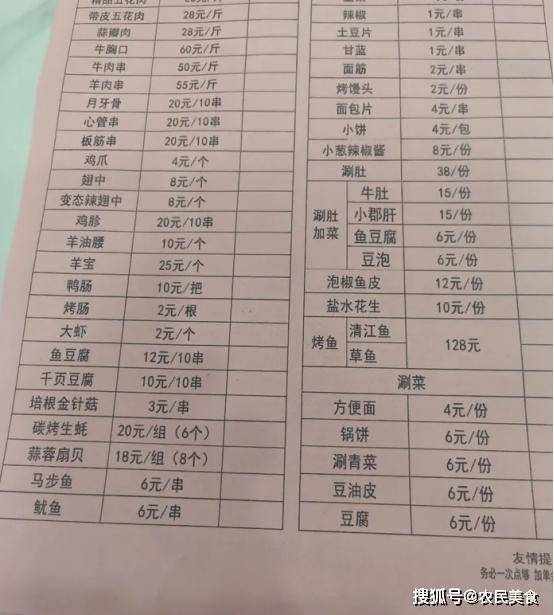 带皮五花肉 28元/斤
蒜瓣肉 28元/斤
牛胸口 60元/斤
牛肉串 50元/斤
羊肉串 55元/斤
月牙骨 20元/10串
心管串 20元/10串
板筋串 20元/10串
鸡爪 4元/个
翅中 8元/个
变态辣翅中 8元/个
鸡胗 20元/10串
羊油腰 10元/个
羊宝 25元/个
鸭肠 10元/把
烤肠 2元/根
大虾 2元/个
鱼豆腐 12元/10串
千页豆腐 10元/10串
培根金针菇 3元/串
碳烤生蚝 20元/组（6个）
蒜蓉扇贝 18元/组（8个）
马步鱼 6元/串
鱿鱼 6元/串
辣椒 1元/串
土豆片 1元/串
甘蓝 1元/串
面筋 2元/串
烤馒头 2元/份
面包片 4元/串
小饼 4元/包
小葱辣椒酱 8元/份
涮肚 38/份
涮肚加菜
牛肚 15/份
小郡肝 15/份
鱼豆腐 6元/份
豆泡 6元/份
泡椒鱼皮 12元/份
盐水花生 10元/份
烤鱼
清江鱼
草鱼
128元
涮菜
方便面 4元/份
锅饼 6元/份
涮青菜 6元/份
豆油皮 6元/份
豆腐 6元/份
友情提
务必一次点够 加单
搜狐号@农民美食